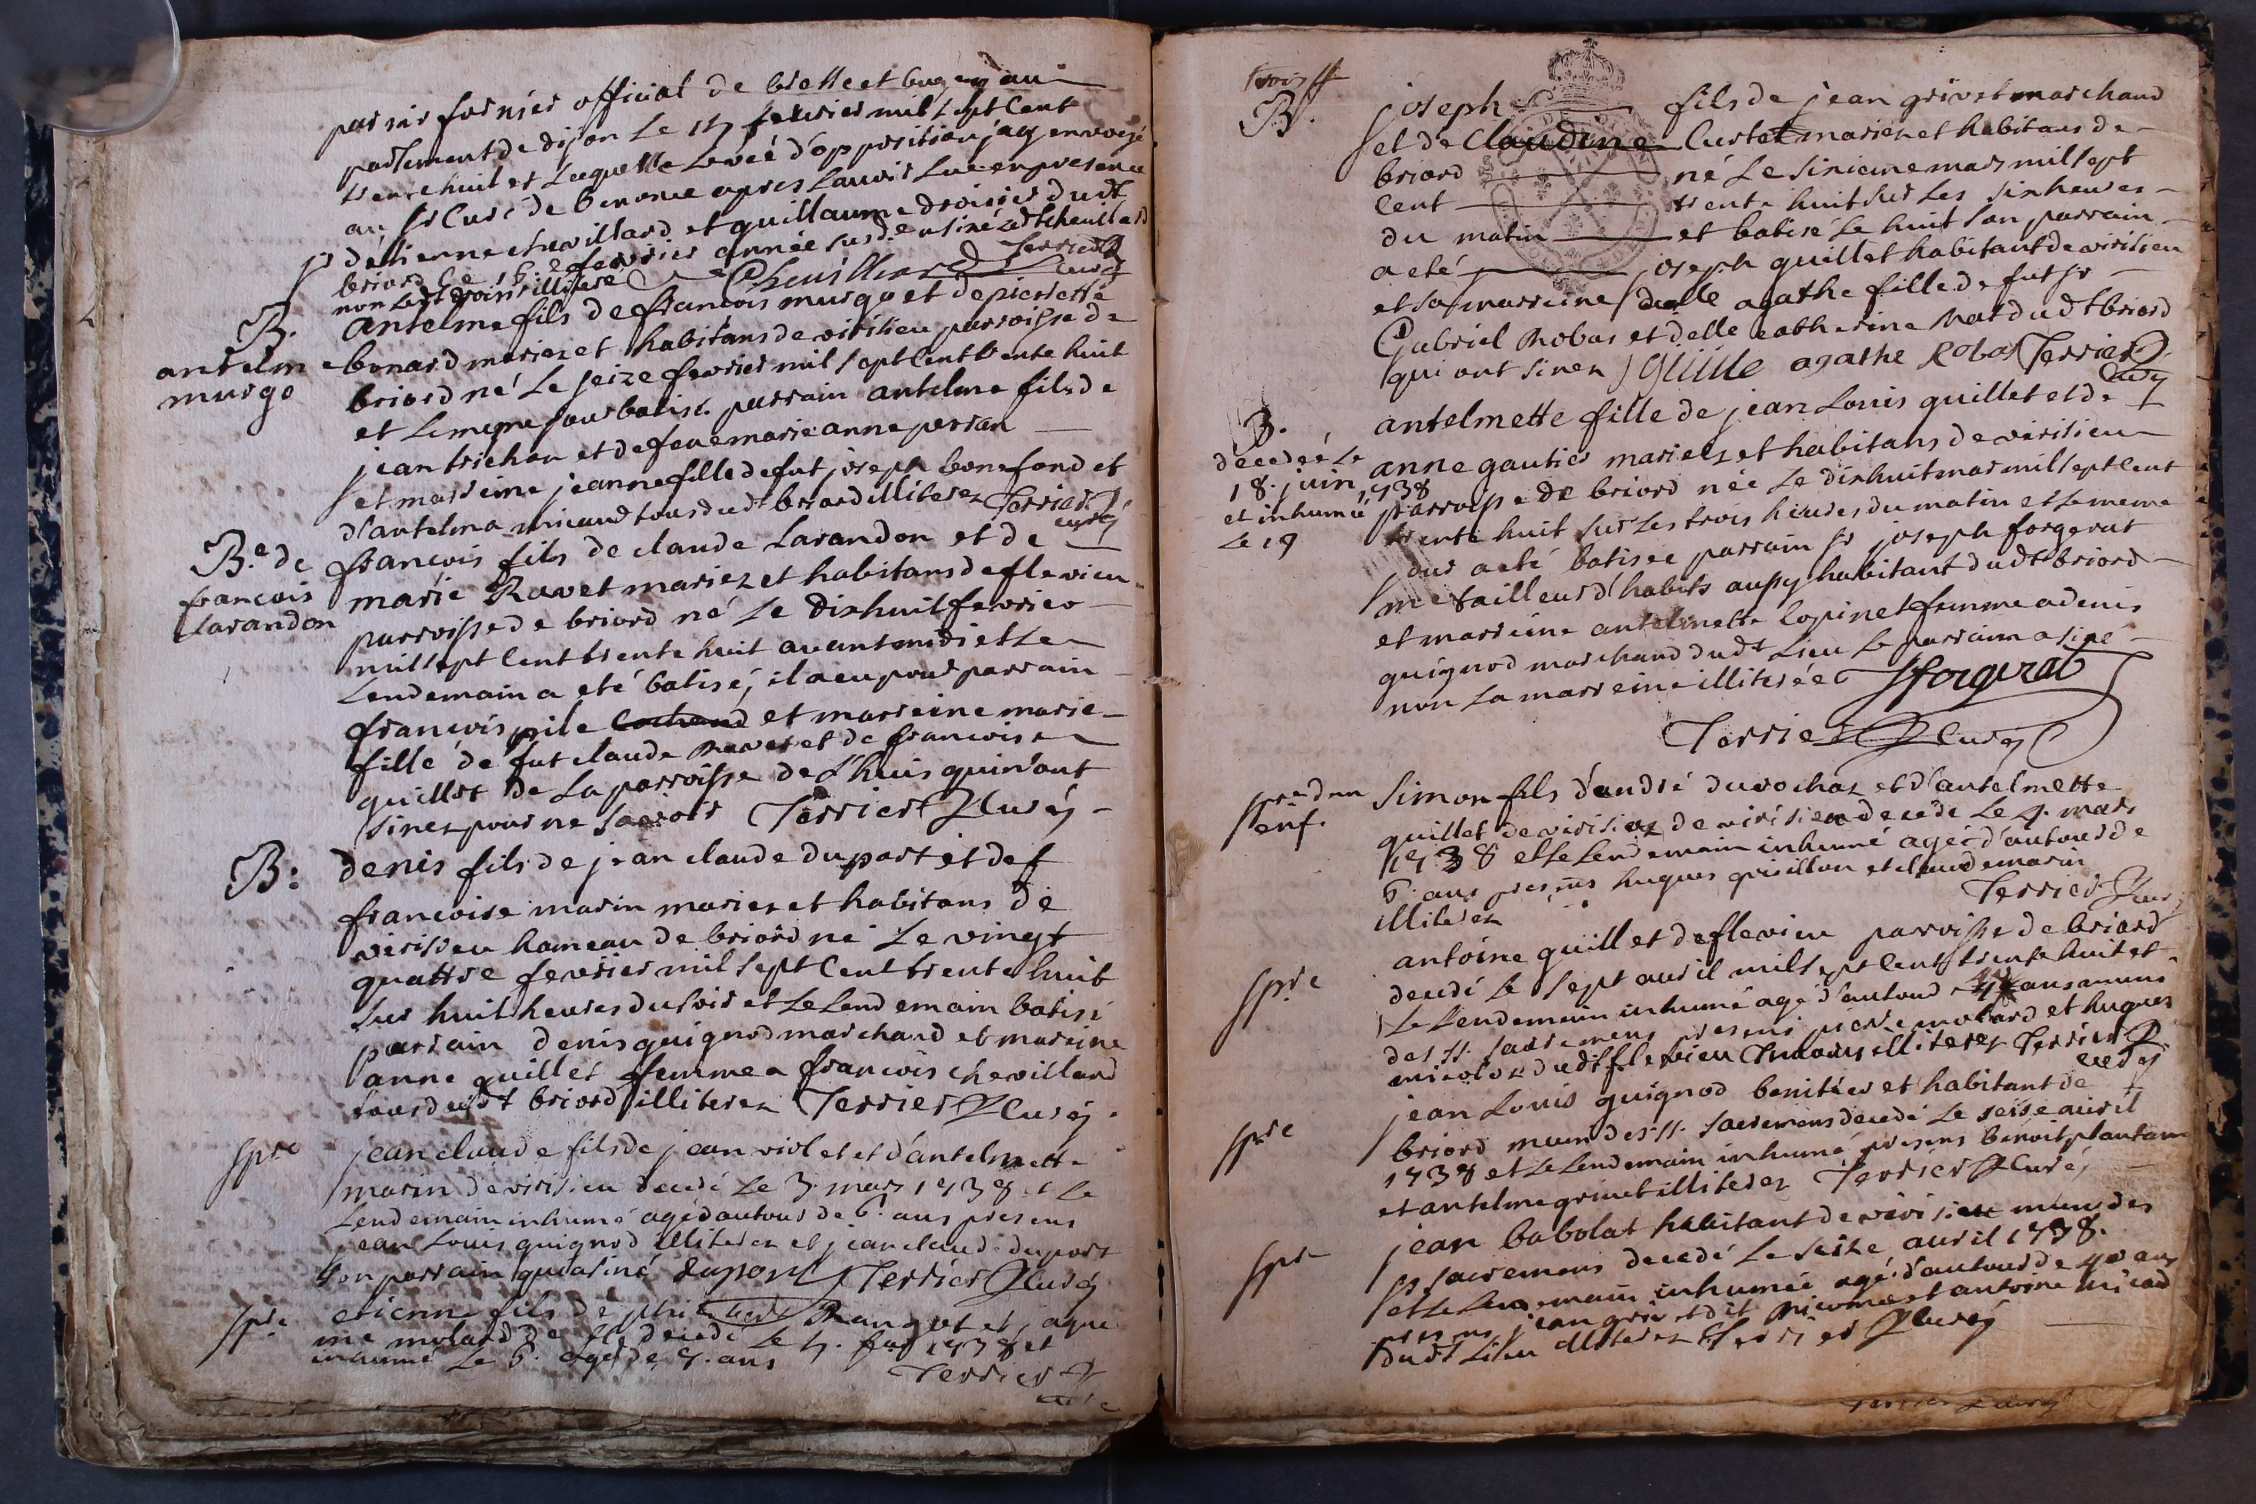 par sir fornier official de bresse et bugey au
parlement de dijon le 15 fevrier mil sept cent
trente huit et laquelle levée d'opposition j'ay envoyé
au sr Curé de benonce apres l'avoir lue en presence
d'etienne chevillard et guillaume droisier dudt
briord ce 16e fevrier année susde a siné ledt cheuillard
non ledt droisier illiteré Cheuilliard Terrier Curé
B. antelme fils de francois murge et de pierrette
antelme
murge
bonard mariez et habitans de virisieu parroisse de
briord né le seize fevrier mil sept cent trente huit
et le meme jour batisé parrain antelme fils de
jean trichon et de feue marie anne perran
et marreine jeanne fille de fut joseph bonefond et
d'antelma micaud tous dudt briord illiterez Terrier Curé
B.e de
francois
larandon
francois fils de claude larandon et de
marie Ravet mariez et habitans de flevieu
parroisse de briord né le dixhuit fevrier
mil sept cent trente huit avant midi et le
lendemain a eté batisé, il a eu pour parrain
francois pile cochand et marreine marie
fille de fut claude ravet et de francoise
guillot de la parroisse de l'huis qui n'ont
sinez pour ne scavoir Terrier Curé
B: denis fils de jean claude duport et de f
francoise marin mariez et habitans de
virisieu hameau de briord né le vingt
quattre fevrier mil sept cent trente huit
sur huit heures du soir et le lendemain batisé
parrain denis guignod marchand et mareine
anne guillet femme a francois chevillard
tous dudt briord illiterez Terrier Curé
spre jean claude fils de jean violet et d'antelmette
marin de virisieu decedé le 3 mars 1738 et le
lendemain inhumé agé d'autour de 6 ans presens
jean louis guignod illiterez et jean claude duport
son parrain qui a siné duport Terrier Curé
spre etienne fils de phi Rangot et jaque
me molard de fle decedé le 5. fev 1738 et
inhumé le 6. agé de 7. ans
Terrier
Curé
B. joseph fils de jean grivet marchand
et de Claudine Curtet mariez et habitans de
briord né le sixieme mars mil sept
cent trente huit sur les six heures
du matin et batisé le huit son parrain
a eté joseph guillet habitant de virisieu
et sa marreine delle agathe fille de fut sr
Gabriel Robas et delle catherine Nat dudt briord
qui ont sinez J Guille agathe Robas Terrier Curé
B.
decedée le
18. juin 1738
et inhumée
le 19
antelmette fille de jean louis guillet et de
anne gautier mariez et habitans de virisieu
parroisse de briord née le dixhuit mars mil sept cent
trente huit sur les trois heures du matin et le meme
jour a eté batisee parrain sr joseph forgerat
me tailleur d'habits aussy habitant dudt briord
et marreine antelmette copinet femme a denis
guignod marchand dudt lieu le parrain a siné
non la marreine illiterée J forgerat
Terrier Curé
spre d'un
enf.
simon fils d'andré durochaz et d'antelmette
guillet de virisieu de virisieu decedé le 9. mars
1738 et le lendemain inhumé agé d'autour de
6. ans presens hugues grisillon et claude marin
illiterez Terrier Curé
spre antoine guillet de flevieu parroisse de briord
decedé le sept auril mil sept cent trente huit et
le lendemain inhumé agé d'autour ans amuni
des ss. sacremens presens pierre molard et hugues
micoloz dudt flevieu illiterez Terrier
Curé
spre jean louis guignod benitier et habitant de
briord muni des ss. sacremens decedé le seise auril
1738 et le lendemain inhumé presens benoit plantam
et antelme grivet illiterez Terrier Curé
spre jean babolat habitant de virisieu muni des
ss sacremens decedé le seize auril 1738.
et le lendemain inhumée agé d'autour de 40 ans
presens jean grivet dit et antoine micoud
dudt lieu illiterez Terrier Curé
Terrier Curé